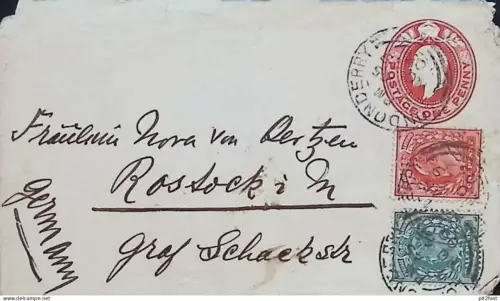 Fräulein Nora von Oertzen
Rostock i M
Graf Schackstr
Germany
POSTAGE ONE PENNY
LONDONDERRY